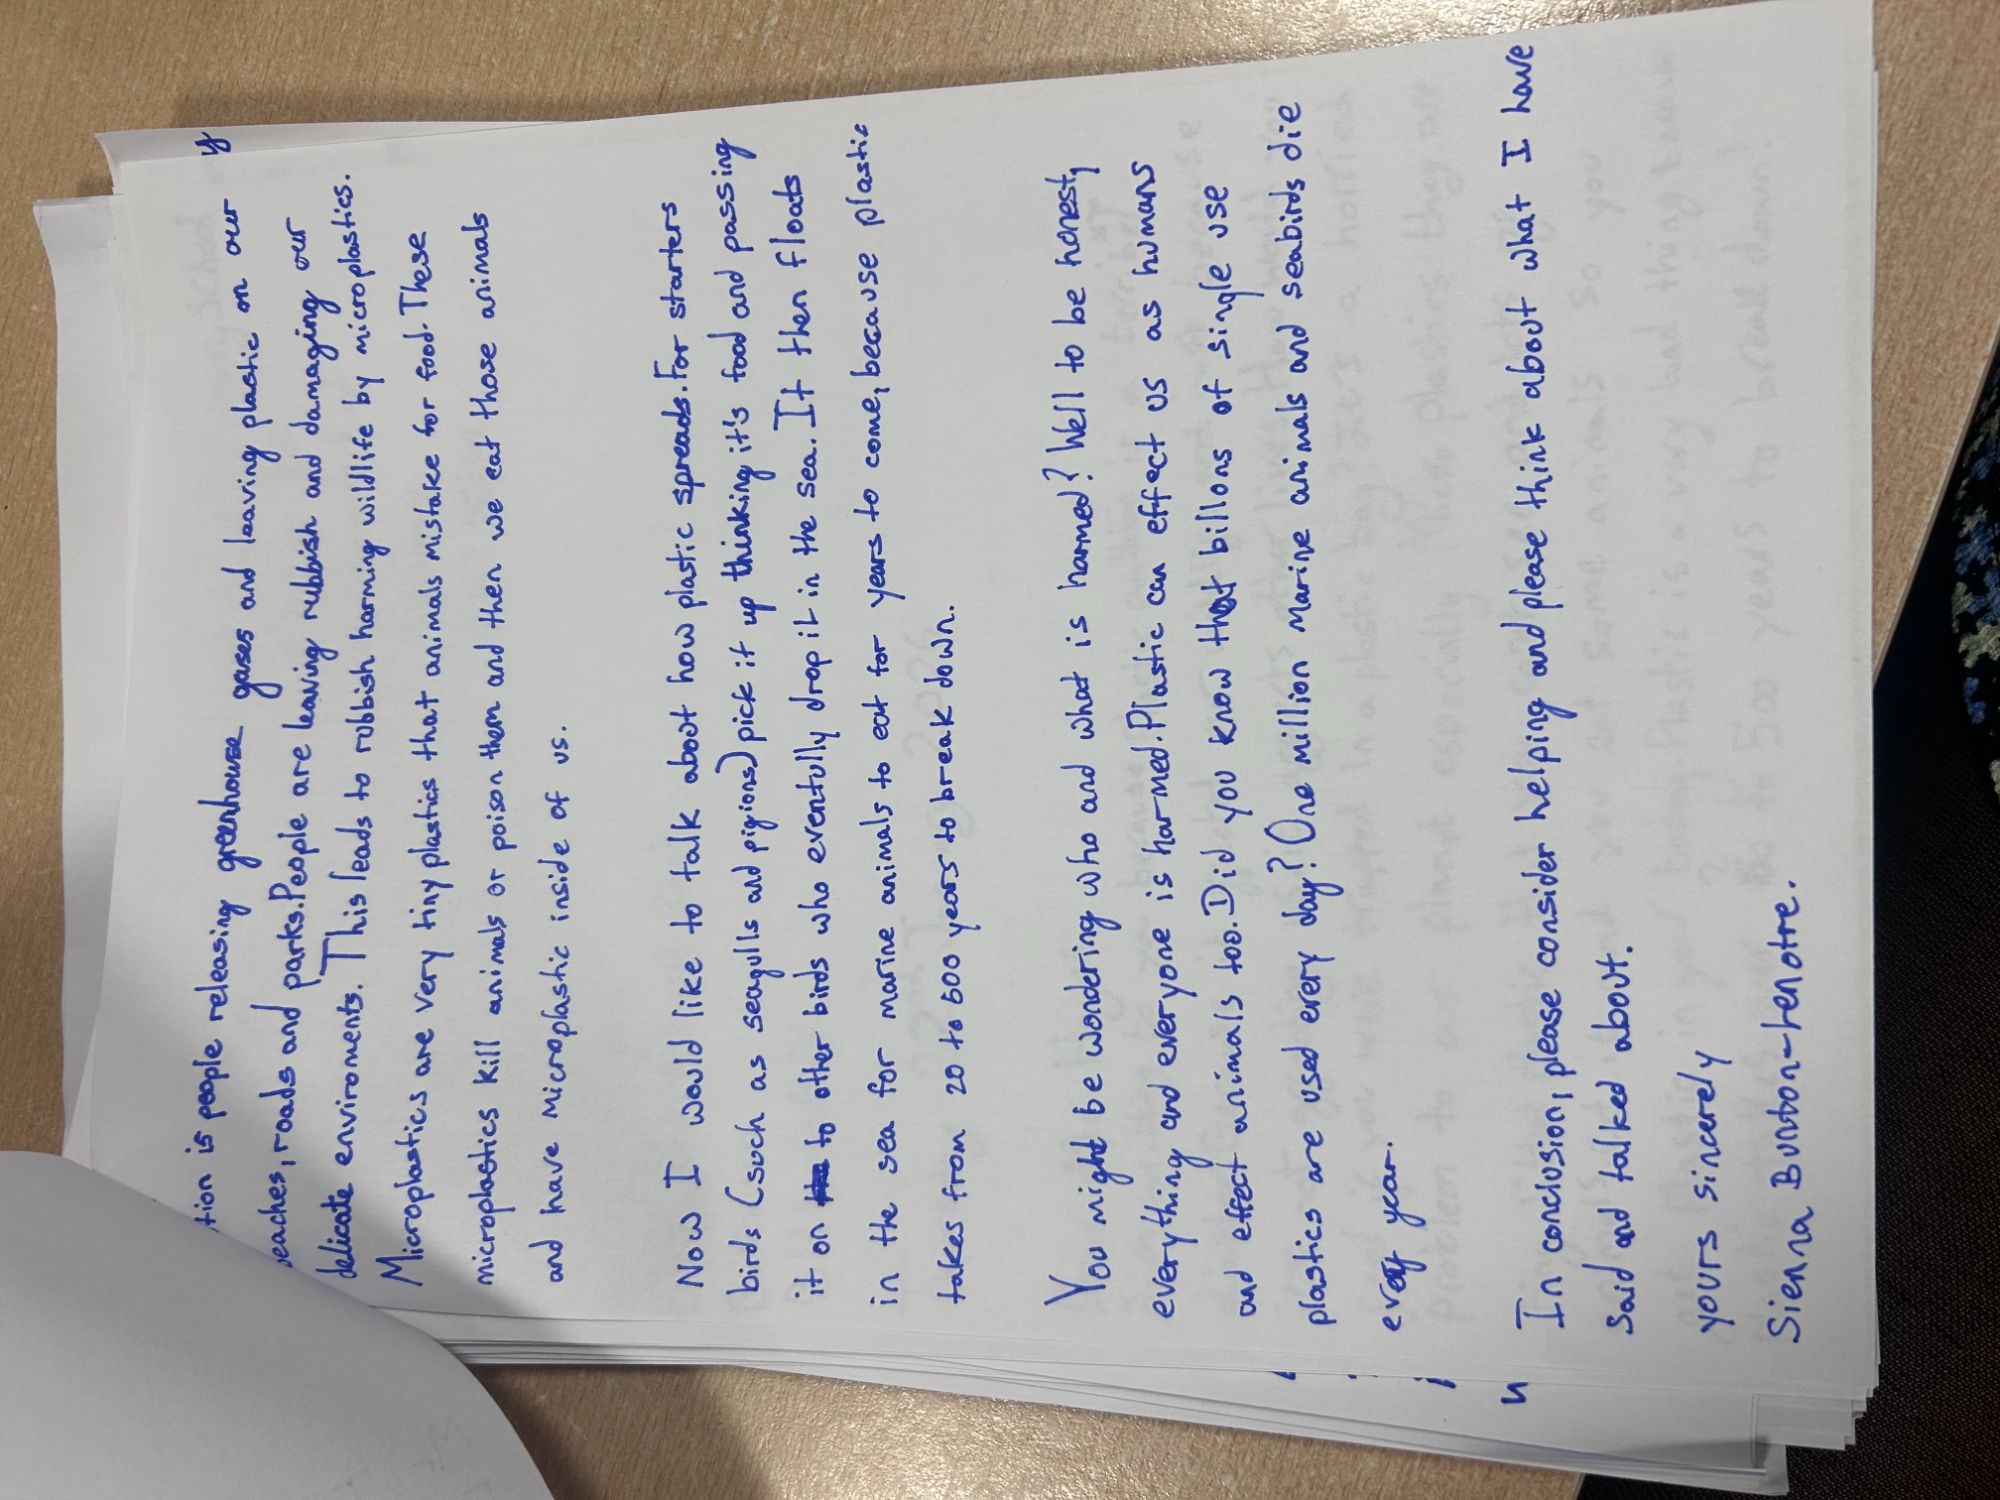 tion is people releasing greenhouse gases and leaving plastic on our
eaches, roads and parks. People are leaving rubbish and damaging our
delicate enviroments. This leads to rubbish harming wildlife by microplastics.
Microplastics are very tiny plastics that animals mistake for food. These
microplastics kill animals or poison them and then we eat those animals
and have microplastic inside of us.
Now I would like to talk about how plastic spreads. For starters
birds (such as seagulls and pigions) pick it up thinking it's food and passing
it on to other birds who eventfully drop it in the sea. It then floats
in the sea for marine animals to eat for years to come, because plastic
takes from 20 to 500 years to break down.
You might be wondering who and what is harmed? Well to be honest,
everything and everyone is harmed. Plastic can effect us as humans
and effect animals too. Did you know that billons of single use
plastics are used every day? One million marine animals and seabirds die
every year.
In conclusion, please consider helping and please think about what I have
said and talked about.
yours sincerely
Sienna Bunton-